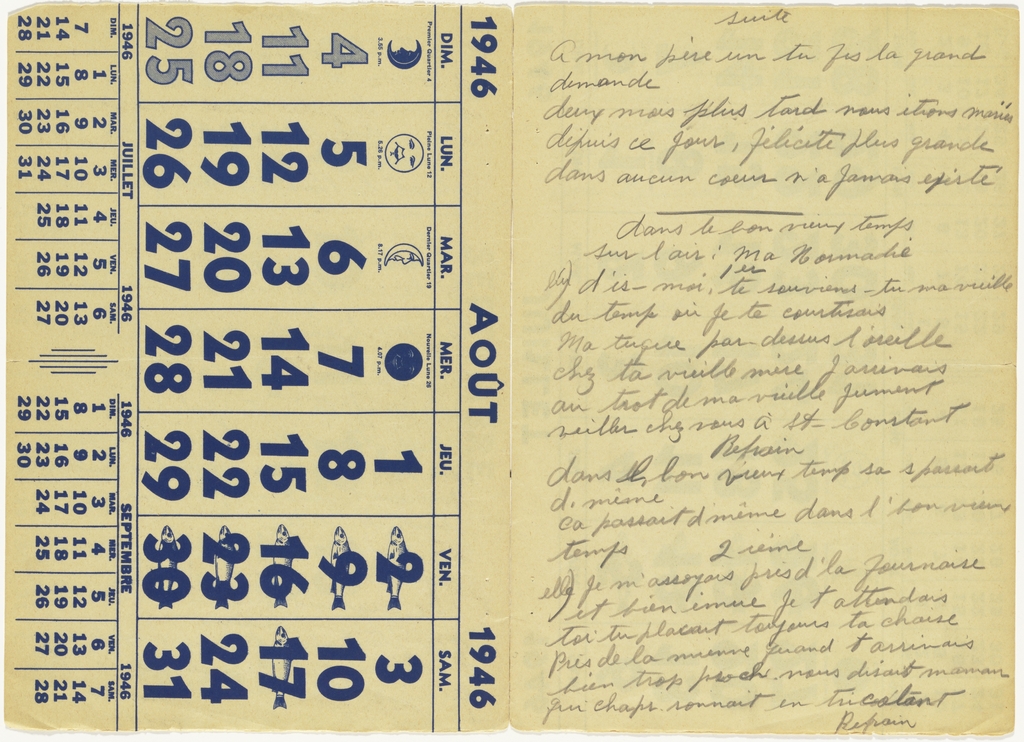 1946 AOÛT 1946
DIM. LUN. MAR. MER. JEU. VEN. SAM.
Premier Quartier 4
3.55 p.m.
Pleine Lune 12
5.26 p.m.
Dernier Quartier 19
8.17 p.m.
Nouvelle Lune 26
4.07 p.m.
1 2 3
4 5 6 7 8 9 10
11 12 13 14 15 16 17
18 19 20 21 22 23 24
25 26 27 28 29 30 31
1946 JUILLET 1946
DIM. LUN. MAR. MER. JEU. VEN. SAM.
1 2 3 4 5 6
7 8 9 10 11 12 13
14 15 16 17 18 19 20
21 22 23 24 25 26 27
28 29 30 31
1946 SEPTEMBRE 1946
DIM. LUN. MAR. MER. JEU. VEN. SAM.
1 2 3 4 5 6 7
8 9 10 11 12 13 14
15 16 17 18 19 20 21
22 23 24 25 26 27 28
29 30
suite
A mon père un tu fis la grand
demande
deux mois plus tard nous étions mariés
depuis ce jour, félicité plus grande
dans aucun coeur n'a jamais existé
dans le bon vieux temps
sur l'air: Ma Normadie
1er
lly) d'is-moi, te souviens-tu ma vieille
du temp où je te courtisais
Ma tuque par-dessus l'oreille
chez ta vieille mère J'arrivais
au trot de ma vieille jument
veiller chez vous à St-Constant
Refrain
dans l bon vieux temp sa s passait
d. même
ca passait d même dans l'bon vieux
temps 2 ième
elle) Je m'assoyais près d'la fournaise
et bien émue Je t'attendais
toi tu placait toujours ta chaise
Près de la mienne quand t'arrivais
bien trop proch. nous disait maman
qui chap. ronnait en tricotant
Refrain